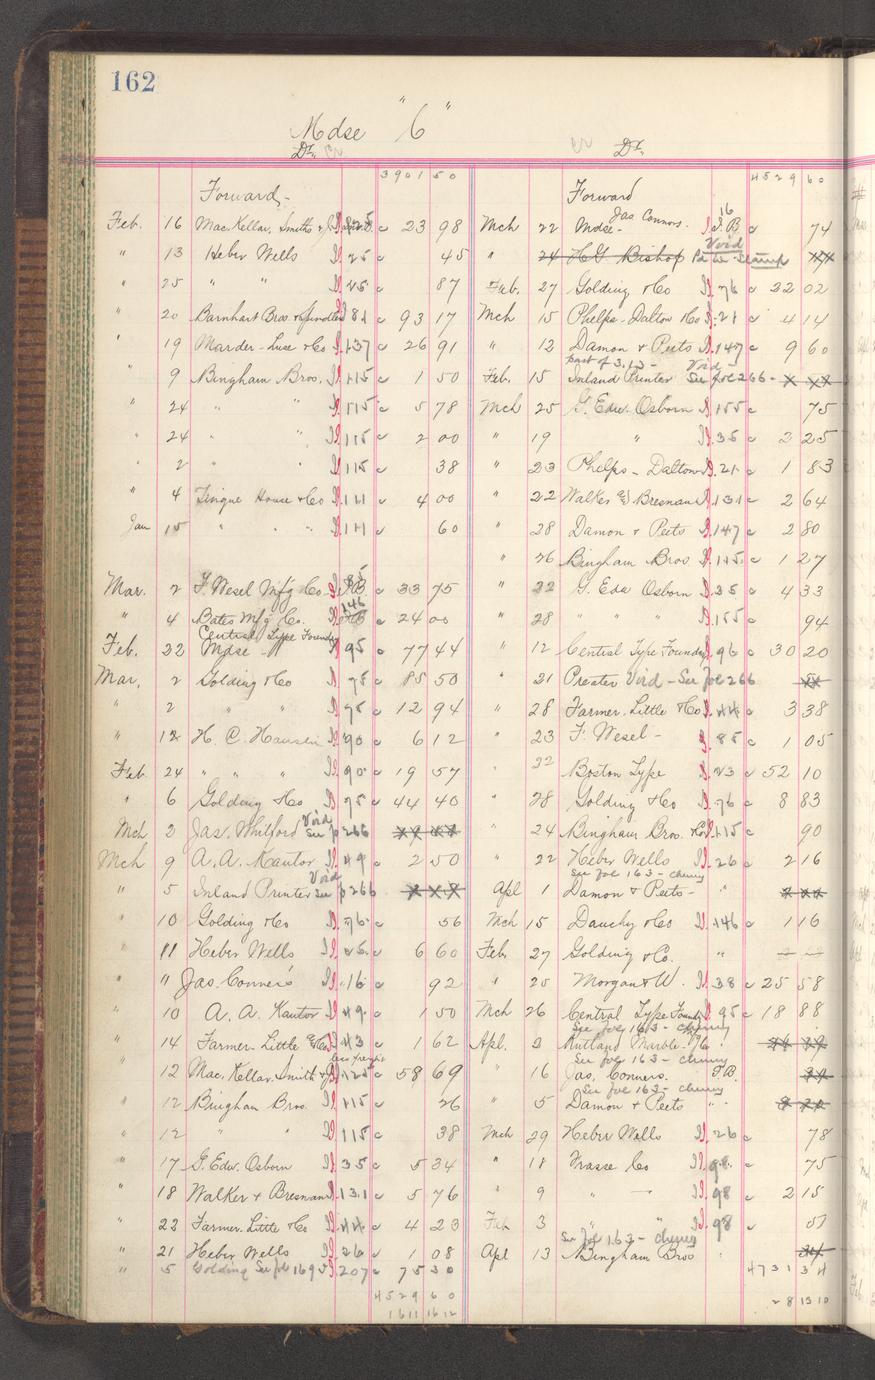 162
Mdse "6"
Dr. Cr
3901 50
Forward,-
Feb. 16 MacKellar, Smiths & J. c 23 98
" 13 Heber Wells 25 c 45
" 25 " " 25 c 87
" 20 Barnhart Bros. & Spindler 81 c 93 17
" 19 Marder-Luse & Co 137 c 26 91
" 9 Bingham Bros. 115 c 1 50
" 24 " " 115 c 5 78
" 24 " " 115 c 2 00
" 2 " " 115 c 38
" 4 Tingue House & Co 111 c 4 00
Jan 15 " " " 111 c 60
Mar. 2 F. Wesel M'f'g Co 85 c 33 75
" 4 Bates Mfg Co. 146 c 24 00
Central Type Foundry
Feb. 22 Mdse - 95 c 77 44
Mar. 2 Golding & Co 75 c 85 50
" 2 " " 75 c 12 94
" 12 H. C. 90 c 6 12
Feb. 24 " " " 90 c 19 57
" 6 Golding & Co 75 c 44 40
Void
Mch 2 Jas. Whitford See p 266
Mch 9 A. A. Kantor 49 c 2 50
Void
" 5 Inland Printer See p 266
" 10 Golding & Co 76 56
" 11 Heber Wells 26 c 6 60
" " Jas. Conner's 16 c 92
" 10 A. A. Kantor 49 c 1 50
" 14 Farmer Little & Co 43 c 1 62
less freight
" 12 Mac. Kellar. Smith & J 125 c 58 69
" 12 Bingham Bros. 115 c 26
" 12 " " 115 c 38
" 17 G. Edw. Osborn 35 c 5 34
" 18 Walker & Bresnan 131 c 5 76
" 22 Farmer. Little & Co 44 c 4 23
" 21 Heber Wells 26 c 1 08
" 5 Golding See fol 169 207 c 75 30
4529 60
1611 16 12
Cr Dr.
4529 60
Forward
Jas Connors. 16
Mch 22 Mdse- F.B c 74
Void
" 24 H.G. Bishop Pd in Stamp
Feb. 27 Golding & Co 76 c 32 02
Mch 15 Phelps-Dalton & Co 21 c 4 14
" 12 Damon & Peets 147 c 9 60
part of 3.13 - Void
Feb. 15 Inland Printer See fol 266 -
Mch 25 G. Edw. Osborn 155 c 75
" 19 " 35 c 2 25
" 23 Phelps-Dalton 21 c 1 83
" 22 Walker & Bresnan 131 c 2 64
" 28 Damon & Peets 147 c 2 80
" 26 Bingham Bros 115 c 1 27
" 22 G. Edw Osborn 35 c 4 33
" 28 " " " 155 c 94
" 12 Central Type Foundry 96 c 30 20
" 21 Prester Void - See fol 266
" 28 Farmer. Little & Co 44 c 3 38
" 23 F. Wesel - 85 c 1 05
" 22 Boston Type 23 c 52 10
" 28 Golding & Co 76 c 8 83
" 24 Bingham Bros. 115 c 90
" 22 Heber Wells 26 c 2 16
See fol 163 - cherry
Apl 1 Damon & Peets - "
Mch 15 Dauchy & Co 146 c 1 16
Feb. 27 Golding & Co. "
" 25 Morgan & W. 38 c 25 58
Mch 26 Central Type Foundry 95 c 18 88
See fol 163 - cherry
Apl. 2 Rutland Marble
See fol 163 - cherry
" 16 Jas. Conners. F.B.
See fol 163 - cherry
" 5 Damon & Peets "
Mch 29 Heber Wells 26 c 78
" 18 Frasse Co 98 75
" 9 " 98 c 2 15
Feb 3 " " 98 c
See fol 163 - cherry
Apl 13 Bingham Bros
4731 34
28 13 10